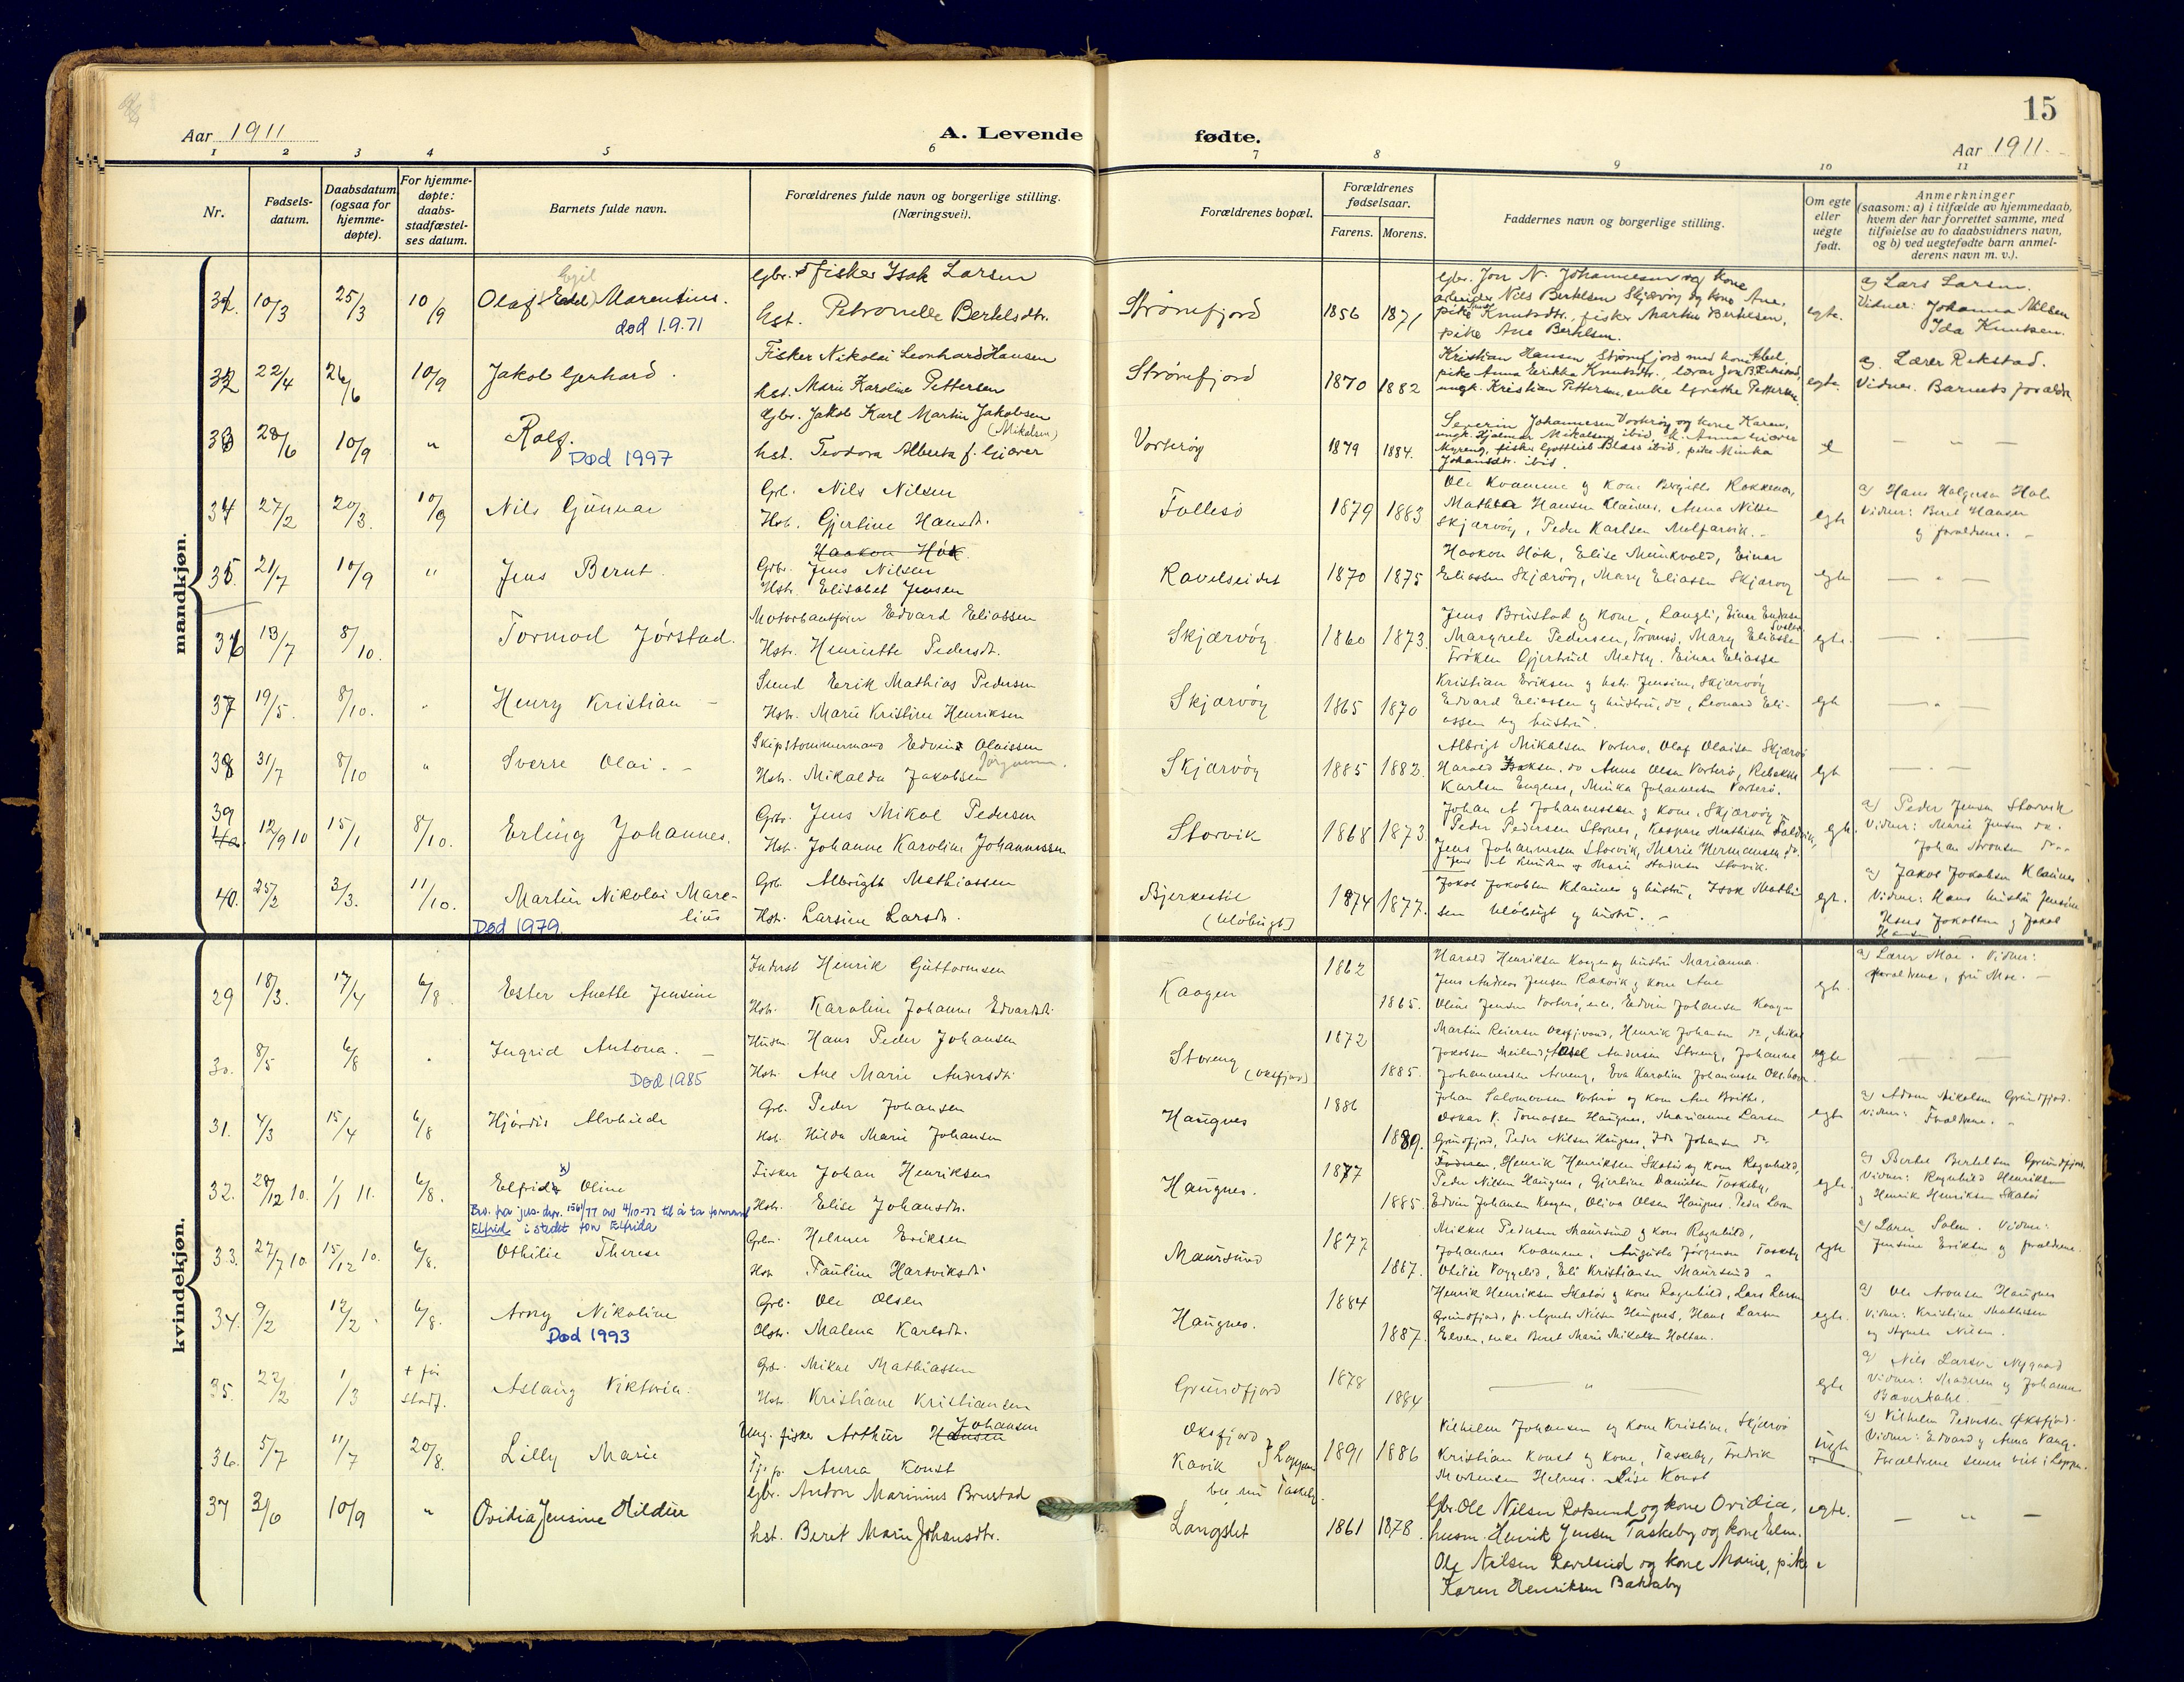 15
Aar 1911
A. Levende
fødte.
Aar 1911.
1
2
3
4
5
6
7
8
9
10
11
Nr.
Fødsels-
datum.
Daabsdatum
(ogsaa for
hjemme-
døpte).
For hjemme-
døpte:
daabs-
stadfæstel-
ses datum.
Barnets fulde navn.
Forældrenes fulde navn og borgerlige stilling.
(Næringsvei).
Forældrenes bopæl.
Forældrenes
fødselsaar.
Farens.
Morens.
Faddernes navn og borgerlige stilling.
Om egte
eller
uegte
født.
Anmerkninger
(saasom: a) i tilfælde av hjemmedaab,
hvem der har forrettet samme, med
tilføielse av to daabsvidners navn,
og b) ved uegtefødte barn anmel-
derens navn m. v.).
mandkjøn.
10/3 25/3 10/9
Egil
Olaf Marensius.
død 1.9.71
Gbr. fisker Isak Larsen
hst. Petronelle Bertelsdtr.
Strømfjord 1856 1871
Gbr. Jon N. Johannesen og kone
arbeider Nils Bertelsen Skjærvøy og kone Ane,
pike Knutsdtr., fisker Martin Bertelsen,
pike Ane Bertelsen.
egte.
a) Lars Larsen.
Vidner: Johanna Nilsen
Ida Knutsen.
32 22/4 26/6 10/9
Jakob Gerhard.
Fisker Nikolai Leonhard Hansen
hst. Marie Karoline Pettersen
Strømfjord 1870 1882
Kristian Hansen Strømfjord med kone
pike Anna Erikka Knutsdtr., lærer Jon
ungk. Kristian Pettersen, enke Grethe Pettersen.
egte.
a) Lærer Rekstad.
Vidner. Barnets forældre
33 28/6 10/9 "
Rolf.
Død 1997
Gbr. Jakob Karl Martin Jakobsen
(Mikalsen)
hst. Teodora Alberta f. Giæver
Vorterøy 1879 1884.
Severin Johannesen Vorterøy og kone Karen,
ungk. Hjalmar Mikalsen ibid, Anna Giæver
fisker Gottlieb ibid, pike Minka
Johansdtr. ibid.
e
34 27/2 20/3. 10/9
Nils Gunnar
Grb. Nils Nilsen
Hst. Gjertine Hansdt.
Follesø 1879 1883
Ole Kvamme og kone
Hansen Klaunes, Anna Nilsen
Skjærvøy, Peder Karlsen
egte
a) Hans Halgersen
Vidner: Beret Hansen
og forældrene.
35. 21/7 10/9 "
Jens Bernt.
Haakon Høk
Grbr. Jens Nilsen
Hstr. Elisabet Jensen
Ravelseidet 1870 1875
Haakon Høk, Elise Munkvold, Einar
Eliassen Skjærvöy, Mary Eliassen Skjærvoy
egte
36 13/7 8/10.
Tormod Jörstad.
Motorbaatfører Edvard Eliassen
Hstr. Henriette Pedersdt.
Skjærvöy 1860 1873.
Jens Brustad og kone, Langli, Einar
Margrete Pedersen, Tromsö, Mary Eliassen
Fröken Gjertrud Medby. Einar Eliassen
egte.
37 19/5. 8/10.
Henry Kristian
Erik Mathias Pedersen
Hstr. Marie Kristine Henriksen
Skjærvöy 1865 1870
Kristian Eriksen og hstr. Jensine, Skjærvöy
Edvard Eliassen og hustru, do, Leonard Eli-
assen og hustru.
egte
38 31/7 8/10 "
Sverre Olai.
Skipstömmermand Edvin Olaissen
Jørgensen.
Hstr. Mikalda Jakobsen
Skjærvöy 1885 1882.
Albrigt Mikalsen Vorterö, Olaf Olaisen Skjærvö
Harald Isaksen, do Anna Olsen Vorterö, Rebekka
Karlsen Engnes, Minka Johannesen Vorterö.
egte
39 12/9 10 15/1 8/10.
Erling Johannes.
Grbr. Jens Mikal Pedersen
Hstr. Johanne Karoline Johannessen
Storvik 1868 1873.
Johan A Johannessen og kone, Skjærvöy
Peder Pedersen Storvik, Kaspara Mathisen
Jens Johannesen Storvik, Marie Hermansen do.
egte.
a) Peder Jensen Storvik
Vidner: Marie Jensen do.
Johan Aronsen do
40. 25/2 3/3. 11/10.
Martin Nikolai Mare-
lius
Død 1979
Grb. Albrigt Mathiassen
Hstr. Larsine Larsdt.
Bjerkestie 1874 1877.
(Uløbugt)
Jakob Jakobsen Klaunes og hustru, Isak Mathi-
sen Uløbugt og hustru.
egte.
a) Jakob Jakobsen Klaunes
Vidner: Hans hustru Jensine
Hans Jakobsen og Jakob
Hansen
kvindekjøn.
29 18/3. 17/4 6/8
Ester Anette Jensine
Inderst Henrik Guttormsen
Hstr. Karoline Johanne Edvardsdt.
Kaagen 1862 1865.
Harald Henriksen Kaagen og hustru Marianna.
Jens Andreas Jensen Rækvik og kone Ane
Oline Jensen Vorterö, enke, Edvin Johansen Kaagen
egte.
a) Lærer Moe. Vidner:
forældrene, fru Moe.
30. 8/5 6/8
Ingrid Antona.
Død 1985
Husm. Hans Peder Johansen
Hstr. Ane Marie Andersdt.
Storeng 1872 1885.
(Oksfjord)
Martin Reiersen Oksfjord, Henrik Johansen do, Mikal
Jakobsen Meiland, Aksel Andersen Storeng, Johanne
Johannessen Arneng, Eva Karoline Johannesen
egte
31. 4/3 15/4 6/8
Hjördis Alvhilde
Grb. Peder Johansen
Hst. Hilda Marie Johansen
Haugnes 1886 1889.
Johan Salomonsen Vorterö og kone Ane Brithe,
Oskar V. Tomassen Haugnes, Marianne Larsen
Grundfjord, Peder Nilsen Haugnes, Ida Johansen do
egte
a) Adam Mikalsen Grundfjord.
Vidner: Forældrene.
32. 28/12 10. 1/1 11. 6/8.
Elfrida Oline
x)
Bev. fra jus-dep. 1561/77 av 4/10-77 til å ta fornavnet
Elfrid i stedet for Elfrida
Fisker Johan Henriksen
Hstr. Elise Johansdtr.
Haugnes. 1877 1885.
Henrik Henriksen Skatø og kone Ragnhild,
Peder Nilsen Haugnes, Gjertine Danielsen Taskeby,
Edvin Johansen Kaagen, Oliva Olsen Haugnes. Peder Larsen
egte.
a) Bertel Bertelsen Grundfjord.
Vidner: Ragnhild Henriksen
og Henrik Henriksen Skatø
33. 27/7 10. 15/12 10. 6/8.
Othilie Therese
Helmer Eriksen
Hst. Pauline Hartviksdt.
Maursund 1877 1887.
Mikkel Pedersen Maursund og kone Ragnhild,
Johannes Kvamme, Augusta Jörgensen Taskeby
Otilie Voggelid, Eli Kristiansen Maursund
egte
a) Lærer Salen. Vidner:
Jensine Eriksen og forældrene.
34. 9/2 12/2. 6/8.
Arny Nikoline
Død 1993
Grb. Ole Olsen
Malena Karlsdt.
Haugnes. 1884 1887.
Henrik Henriksen Skatö og kone Ragnhild, Lars Larsen
Grundfjord, p. Agnete Nilsen Haugnes, Hans Larsen
Elven, enke Beret Marie Mikalsen Holtan.
egte.
a) Ole Aronsen Haugnes
Vidner: Kristine Mathisen
og Agnete Nilsen.
35. 22/2 1/3 + før
stadf.
Aslaug Viktoria.
Grb. Mikal Mathiassen
Hst. Kristiane Kristiansen
Grundfjord 1878 1884
egte
a) Nils Larsen Nygaard
Vidner: Moderen og Johanne
Bæverdahl.
36. 5/7 11/7 20/8.
Lilly Marie
Ung. fisker Arthur Hansen
Johansen
Tj. p. Anna Konst
Oksfjord
Kavik } Loppen
bor nu Taskeby.
1891 1886
Vilhelm Johansen og kone Kristine, Skjærvö
Kristian Konst og kone, Taskeby, Fredrik
Mortensen Helnes. Lise Konst
Uegte
a) Vilhelm Pedersen Öksfjord.
Vidner: Edvard og Anna Vang.
Forældrene senere viet i Loppen.
37 2/6 10/9 "
Ovidia Jensine Hildur
Gbr. Anton Marinius Brustad
hst. Berit Marie Johansdtr.
Langslet 1861 1878.
Gbr. Ole Nilsen Rotsund og kone Ovidia,
husm. Henrik Jensen Taskeby og kone Elen.
Ole Nilsen Ravelseid og kone Marie, pike
Karen Henriksen Bakkeby
egte.